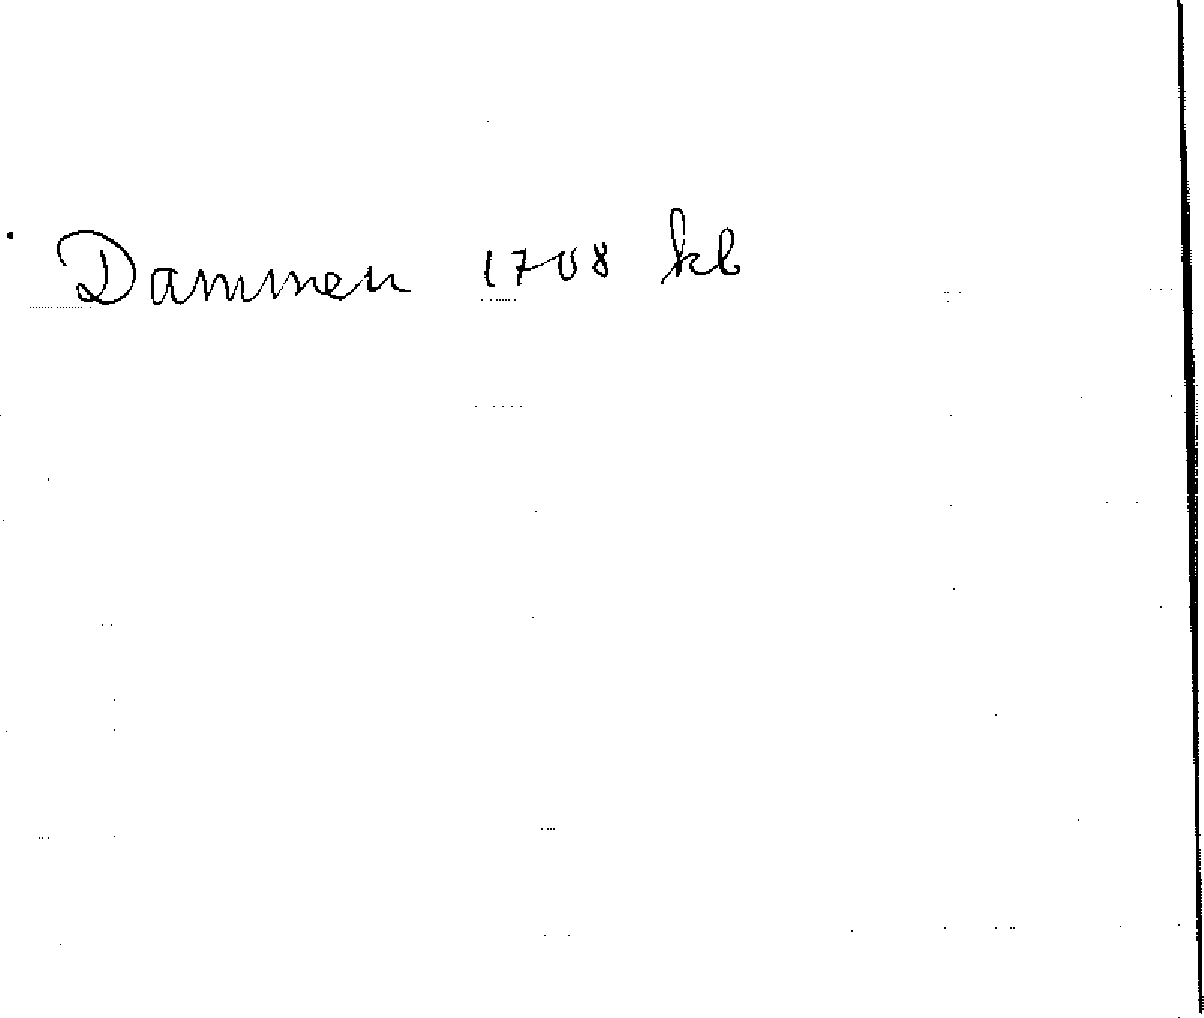 Dammen 1708 kb